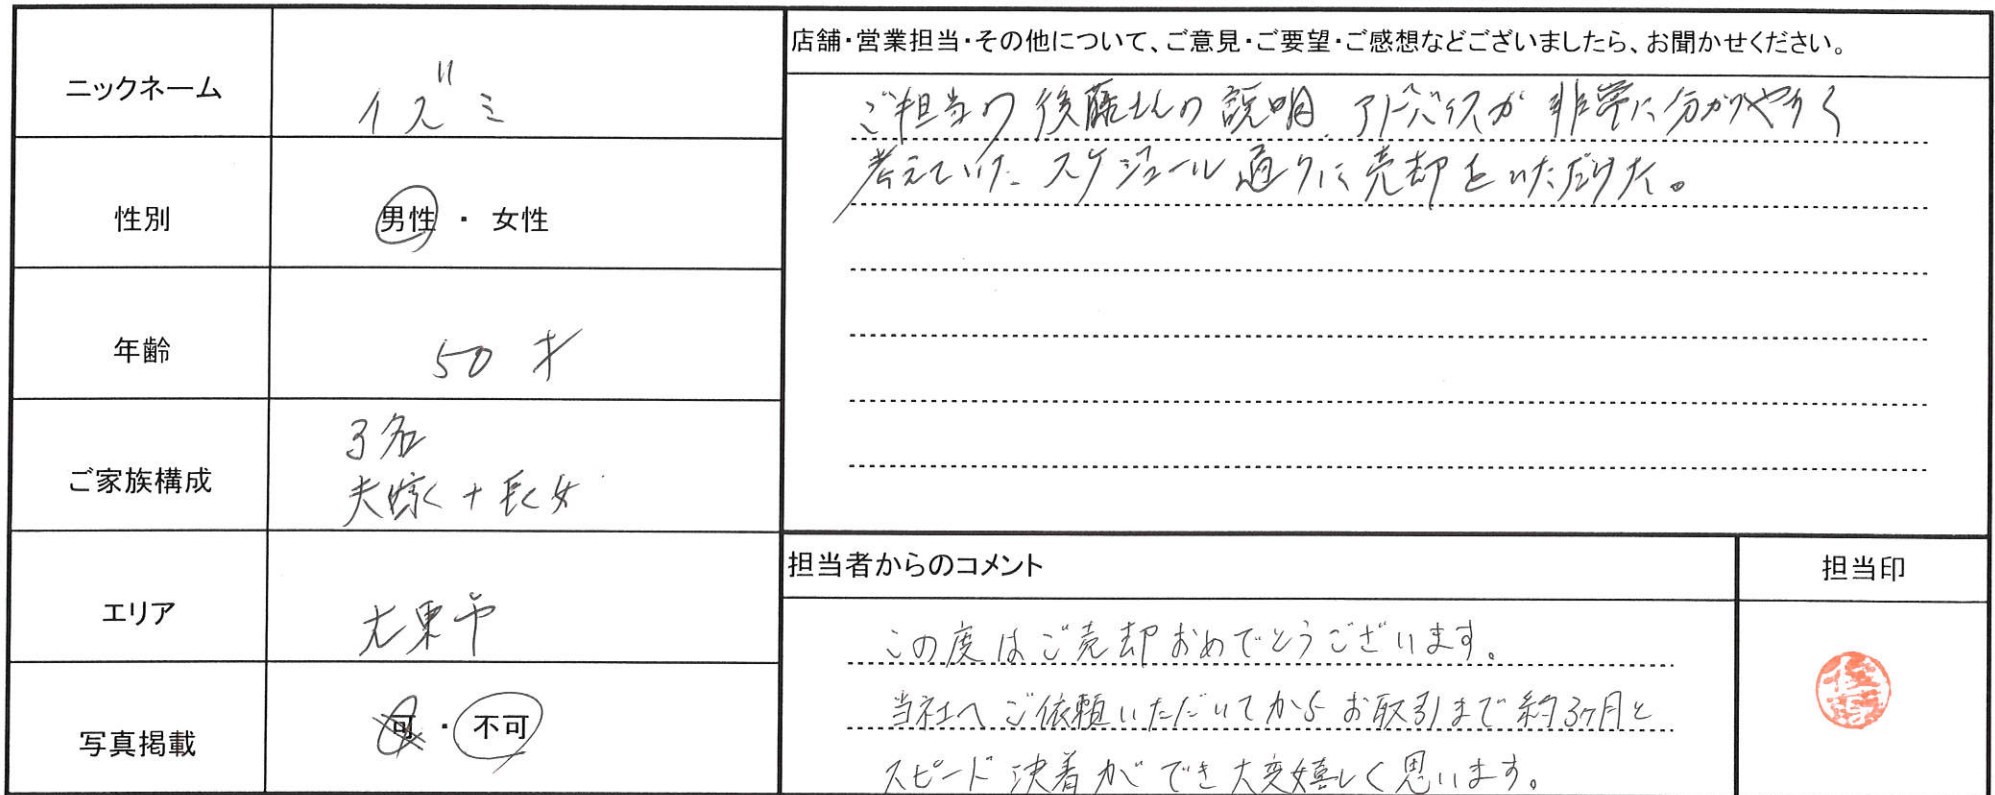 ニックネーム
イズミ
性別
男性・女性
年齢
50才
ご家族構成
3名
夫婦+長女
エリア
大東市
写真掲載
可・不可
店舗・営業担当・その他について、ご意見・ご要望・ご感想などございましたら、お聞かせください。
ご担当の後藤さんの説明、アドバイスが非常に分かりやすく
考えていたスケジュール通りに売却をいただけた。
担当者からのコメント
この度はご売却おめでとうございます。
当社へご依頼いただいてからお取引まで約3ヶ月と
スピード決着ができ大変嬉しく思います。
担当印